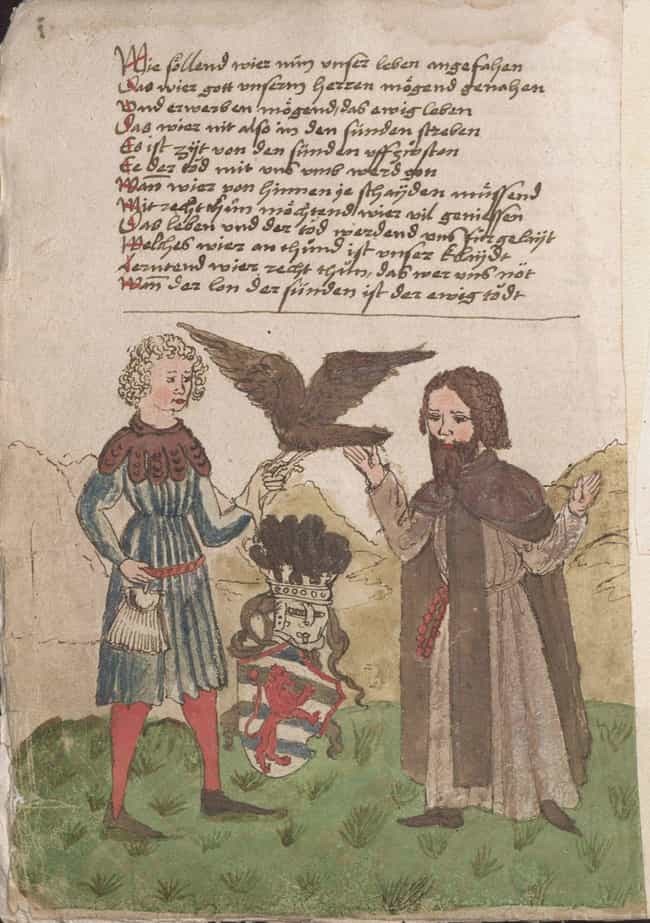 Wie söllend wier nun unser leben angefahen
Das wier gott unserm herren mögend genahen
Und erwerben mögend das ewig leben
Das wier nit also in den sünden streben
Es ist zÿt von den sünden uff zwston
Ee der tod mit uns umb werd gon
Wañ wier von hinnen ie schaÿden müssend
Mit recht thun möchtend wier vil geniessen
Das leben und der tod werdend uns fürgelaÿt
Welches wier an thund ist unser klaÿdt
Lerntend wier recht thun, das wer uns nöt
Wañ der lon der sünden ist der ewig todt